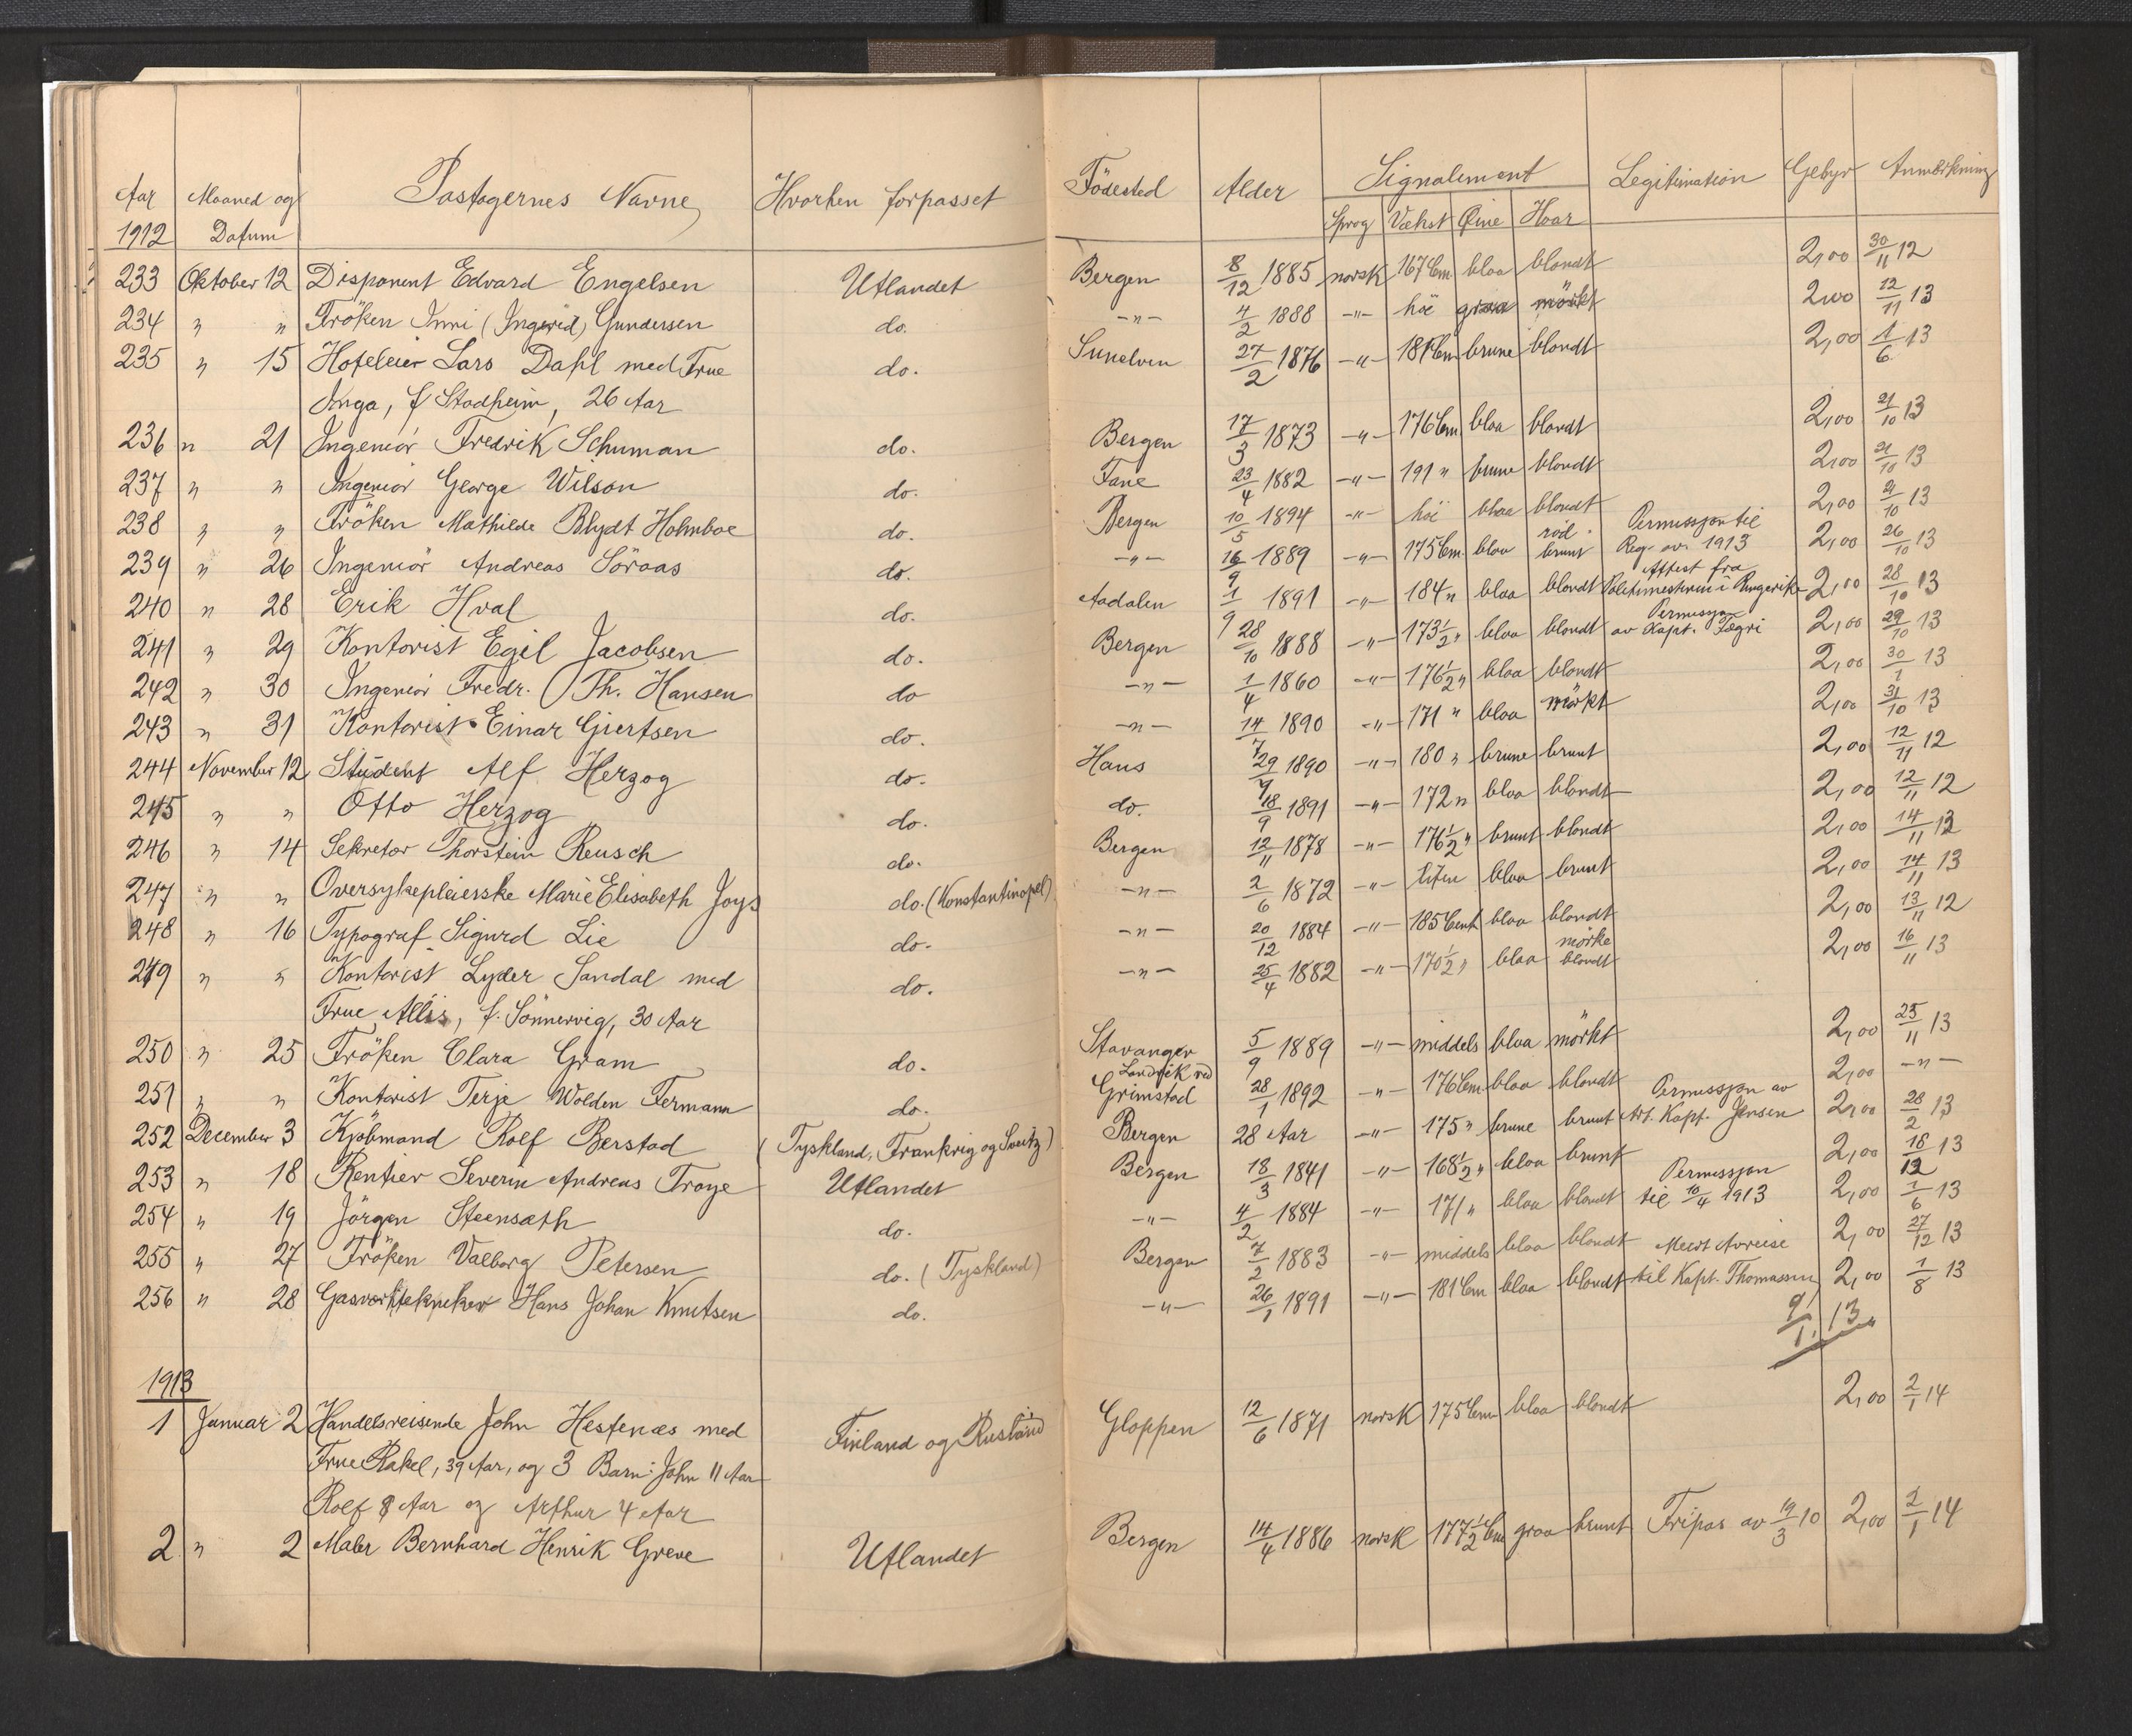 Aar Maaned og Pastagernes Navne Hvorhen forpasset Födested Alder Signalement Legitimation Gebyr Anmerkning
1912 Datum Sprog Vækst Øine Haar
233 Oktober 12 Disponent Edvard Engelsen Utlandet Bergen 8/12 1885 norsk 167 Cm blaa blondt 2,00 30/11 12
234 " " Fröken Inni (Ingerid) Gundersen do. -"- 4/2 1888 -"- höi graa mörkt 2,00 12/11 13
235 " 15 Hoteleier Lars Dahl med Frue do. Sunelven 27/2 1876 -"- 181 Cm brune blondt 2,00 1/6 13
Inga, f Stadheim, 26 Aar
236 " 21 Ingeniör Fredrik Schuman do. Bergen 17/3 1873 -"- 176 Cm blaa blondt 2,00 21/10 13
237 " " Ingeniör George Wilson do. Fane 23/4 1882 -"- 191 " brune blondt 2,00 21/10 13
238 " " Fröken Mathilde Blydt Holmboe do. Bergen 10/5 1894 -"- höi blaa blondt 2,00 21/10 13
239 " 26 Ingeniör Andreas Söraas do. -"- 16/9 1889 -"- 175 Cm. blaa röd brunt Permissjon til Reg. av. 1913 2,00 26/10 13
240 " 28 Erik Hval do. Aadalen 1/9 1891 -"- 184 " blaa blondt Attest fra Politimesteren i Ringerike 2,00 28/10 13
241 " 29 Kontorist Egil Jacobsen do. Bergen 28/10 1888 -"- 173 1/2 " blaa blondt Permisjon av Kapt. Fægri 2,00 29/10 13
242 " 30 Ingeniör Fredr. Th. Hansen do -"- 1/4 1860 -"- 176 1/2 " blaa blondt 2,00 30/1 13
243 " 31 Kontorist Einar Giertsen do. -"- 14/7 1890 -"- 171 " blaa mörkt 2,00 31/10 13
244 November 12 Student Alf Herzog do. Haus 29/9 1890 -"- 180 " brune brunt 2,00 12/11 12
245 " " Otto Herzog do. do. 18/9 1891 -"- 172 " blaa blondt 2,00 12/11 12
246 " 14 Sekretær Thorstein Reusch do. Bergen 12/11 1878 -"- 176 1/2 " brunt blondt 2,00 14/11 13
247 " " Oversykepleierske Marie Elisabeth Joys do. (Konstantinopel) -"- 2/6 1872 -"- liten blaa brunt 2,00 14/11 13
248 " 16 Typograf Sigurd Lie do. -"- 20/12 1884 -"- 185 Cent blaa blondt 2,00 13/11 12
249 " " Kontorist Lyder Sandal med do. -"- 25/4 1882 -"- 170 1/2 " blaa mörke blondt 2,00 16/11 13
Frue Allis, f. Sönnervig, 30 Aar
250 " 25 Fröken Clara Gram do. Stavanger 5/9 1889 -"- middels blaa mörkt 2,00 25/11 13
251 " " Kontorist Terje Wolden Fermann do. Landvik ved Grimstad 28/1 1892 -"- 176 Cm blaa blondt 2,00 -"-
252 December 3 Kjöbmand Rolf Berstad (Tyskland, Frankrig og Sveitz) Bergen 28 Aar -"- 175 " brune brunt Permissjon av Art. Kapt. Jensen 2,00 28/2 13
253 " 18 Rentier Severin Andreas Troye Utlandet Bergen 18/3 1841 -"- 168 1/2 " blaa brunt 2,00 18/12 13
254 " 19 Jörgen Steensæth do. -"- 4/2 1884 -"- 171 " blaa blondt Permissjon til 10/4 1913 2,00 1/6 13
255 " 27 Fröken Valborg Petersen do. (Tyskland) Bergen 7/2 1883 -"- middels blaa blondt 2,00 27/12 13
256 " 28 Gasverktekniker Hans Johan Knutsen do. -"- 26/1 1891 -"- 181 Cm blaa blondt Meldt Avreise til Kapt. Thomassen 2,00 1/8 13
9/1. 13.
1913
1 Januar 2 Handelsreisende John Hestenæs med Finland og Rusland Gloppen 12/6 1871 norsk 175 Cm blaa blondt 2,00 2/1 14
Frue Rakel, 39 Aar, og 3 Barn: John 11 Aar
Rolf 8 Aar og Arthur 4 Aar
2 " 2 Maler Bernhard Henrik Greve Utlandet Bergen 14/4 1886 norsk 177 1/2 Cm graa brunt Fripas av 19/3 10 2,00 2/1 14